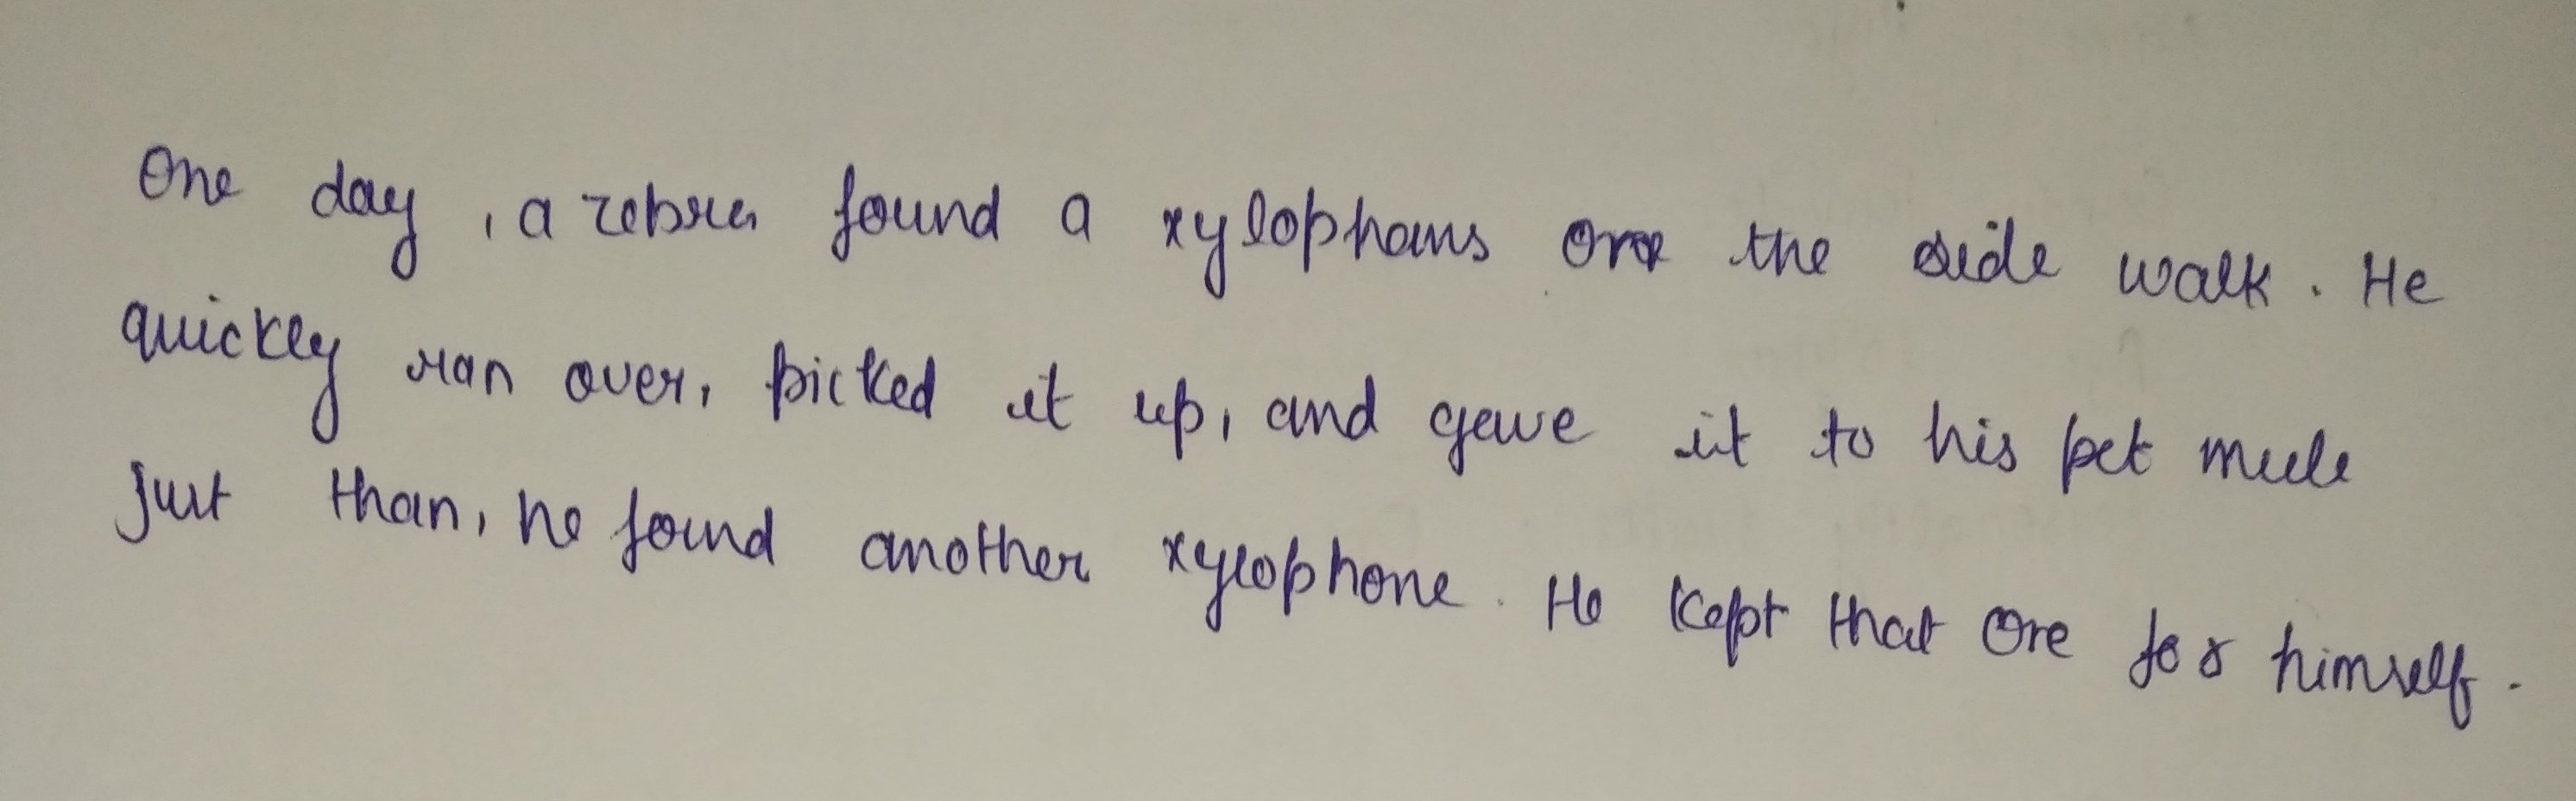 One day, a zebra found a xylophons on the side walk. He
quickly ran over, picked it up, and gave it to his pet mule
Just than, he found another xylophone. He kept that one for himself.